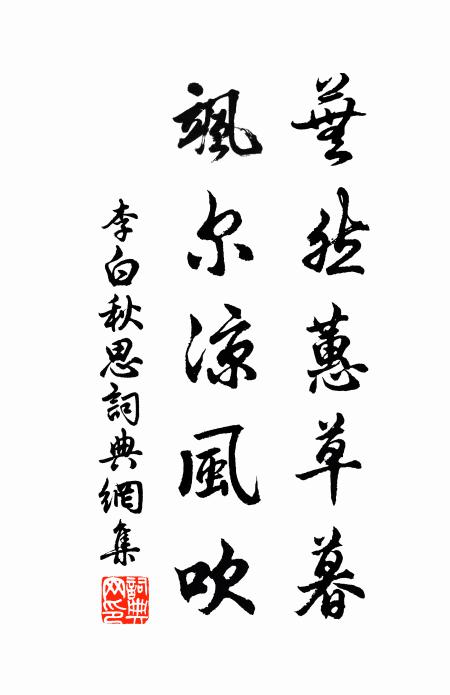 蕪然蕙草暮
颯尔涼風吹
李白秋思詞典網集
詞典網印